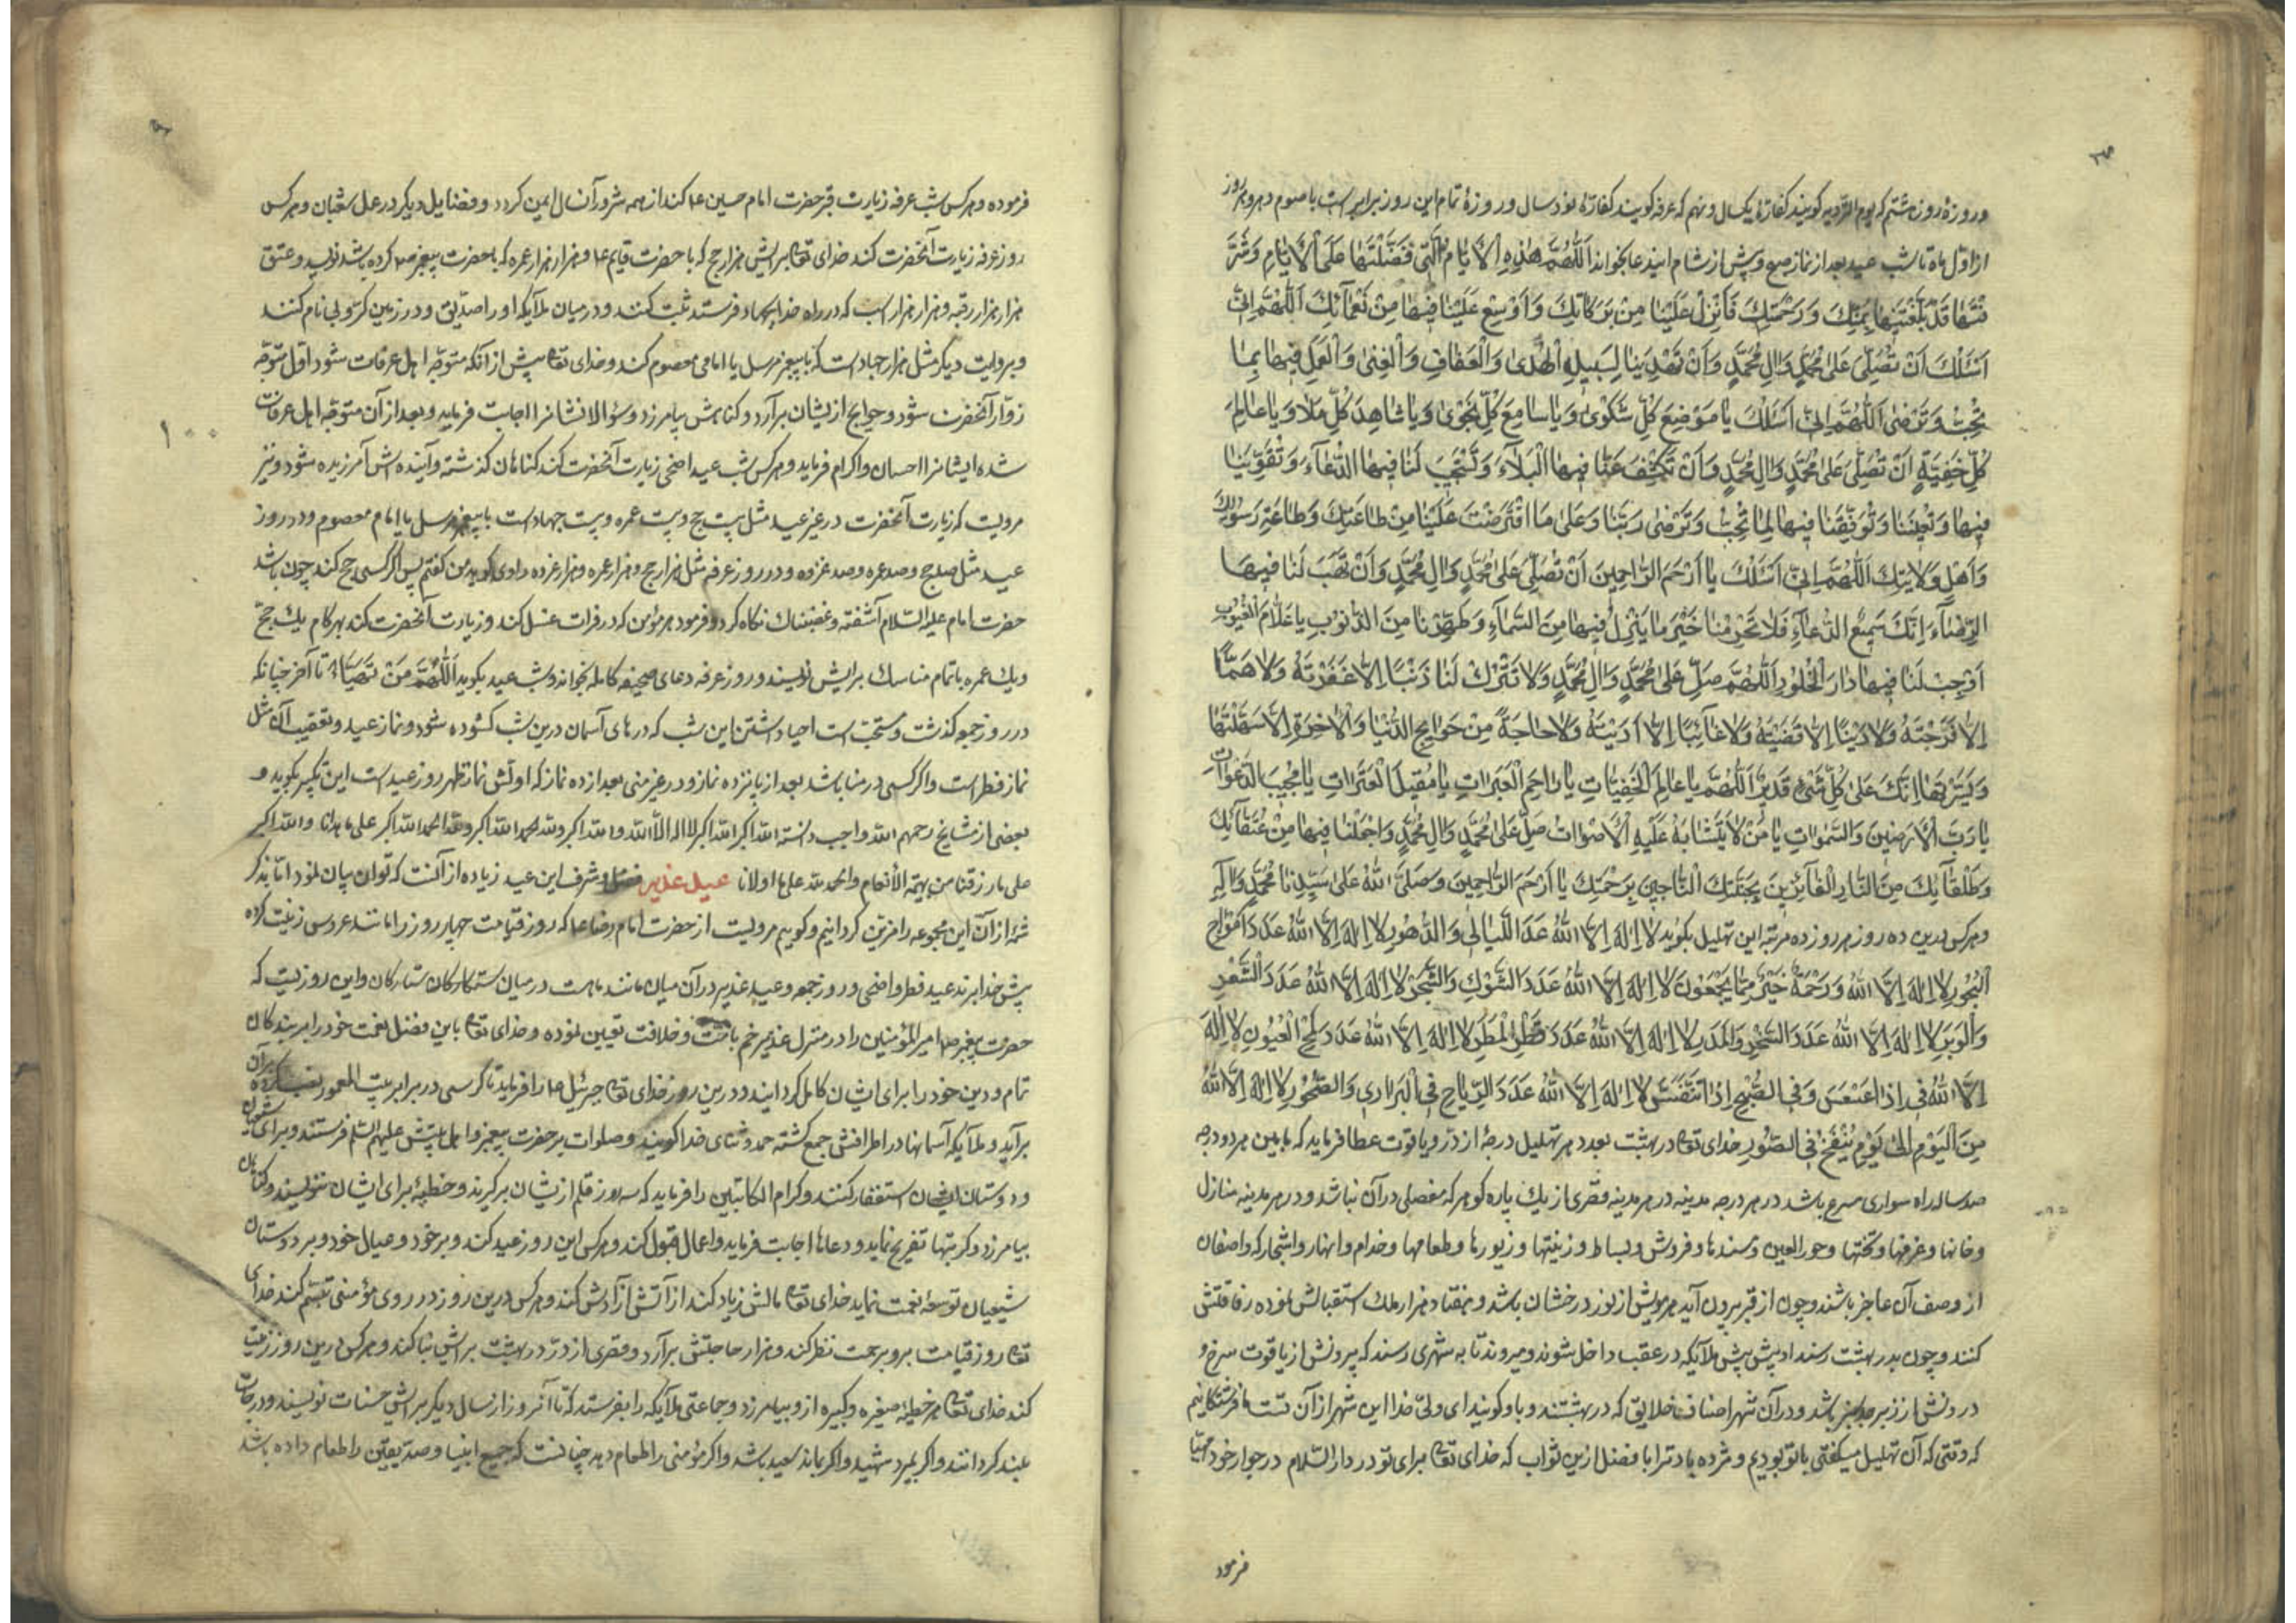 و روزهٔ روز هشتم که یوم الترویه کویند کفارهٔ یکسال و نهم که عرفه کویند کفارهٔ نود سال و روزهٔ تمام این روز برابر است با صوم دهر و هر روز
از اوّل ماه تا شب عید بعد از نماز صبح و پیش از شام این دعا بخواند اَللّٰهُمَّ هٰذِهِ الْاَیّامُ الَّتی فَضَّلْتَهٰا عَلَی الْاَیّٰامِ وَ شَرَّ
فْتَهٰا قَدْ بَلَّغْتَنیهٰا بِمَنِّكَ وَ رَحْمَتِكَ فَاَنْزِلْ عَلَیْنٰا مِنْ بَرَكٰاتِكَ وَ اَوْسِعْ عَلَیْنٰا فیهٰا مِنْ نَعْمٰآئِكَ اَللّٰهُمَّ اِنّی
اَسْئَلُكَ اَنْ تُصَلِّیَ عَلیٰ مُحَمَّدٍ وَ اٰلِ مُحَمَّدٍ وَ اَنْ تَهْدِیَنٰا لِسَبیلِ الْهُدیٰ وَ الْعَفٰافِ وَ الْغِنیٰ وَ الْعَمَلِ فیهٰا بِمٰا
تُحِبُّ وَ تَرْضیٰ اَللّٰهُمَّ اِنّی اَسْئَلُكَ یٰا مَوْضِعَ كُلِّ شَكْویٰ وَ یٰا سٰامِعَ كُلِّ نَجْویٰ وَ یٰا شٰاهِدَ كُلِّ مَلَاءٍ وَ یٰا عٰالِمَ
كُلِّ خَفِیَّةٍ اَنْ تُصَلِّیَ عَلیٰ مُحَمَّدٍ وَ اٰلِ مُحَمَّدٍ وَ اَنْ تَكْشِفَ عَنّٰا فیهَا الْبَلٰآءَ وَ تَسْتَجیبَ لَنٰا فیهَا الدُّعٰآءَ وَ تُقَوِّیَنٰا
فیهٰا وَ تُعینَنٰا وَ تُوَفِّقَنٰا فیهٰا لِمٰا تُحِبُّ وَ تَرْضیٰ رَبَّنٰا وَ عَلیٰ مَا افْتَرَضْتَ عَلَیْنٰا مِنْ طٰاعَتِكَ وَ طٰاعَةِ رَسُولِكَ
وَ اَهْلِ وَلٰایَتِكَ اَللّٰهُمَّ اِنّی اَسْئَلُكَ یٰا اَرْحَمَ الرّٰاحِمینَ اَنْ تُصَلِّیَ عَلیٰ مُحَمَّدٍ وَ اٰلِ مُحَمَّدٍ وَ اَنْ تَهَبَ لَنٰا فیهَا
الرِّضٰآءَ اِنَّكَ سَمیعُ الدُّعٰآءِ فَلٰا تَحْرِمْنٰا خَیْرَ مٰا یُنْزَلُ فیهٰا مِنَ السَّمٰآءِ وَ طَهِّرْنٰا مِنَ الذُّنُوبِ یٰا عَلّٰامَ الْغُیُوبِ
اَوْجِبْ لَنٰا فیهٰا دٰارَ الْخُلُودِ اَللّٰهُمَّ صَلِّ عَلیٰ مُحَمَّدٍ وَ اٰلِ مُحَمَّدٍ وَ لٰا تَتْرُكْ لَنٰا ذَنْبًا اِلّٰا غَفَرْتَهُ وَ لٰا هَمًّا
اِلّٰا فَرَّجْتَهُ وَ لٰا دَیْنًا اِلّٰا قَضَیْتَهُ وَ لٰا غٰائِبًا اِلّٰا اَدَّیْتَهُ وَ لٰا حٰاجَةً مِنْ حَوٰائِجِ الدُّنْیٰا وَ الْاٰخِرَةِ اِلّٰا سَهَّلْتَهٰا
وَ یَسَّرْتَهٰا اِنَّكَ عَلیٰ كُلِّ شَیْءٍ قَدیرٌ اَللّٰهُمَّ یٰا عٰالِمَ الْخَفِیّٰاتِ یٰا رٰاحِمَ الْعَبَرٰاتِ یٰا مُقیلَ الْعَثَرٰاتِ یٰا مُجیبَ الدَّعَوٰاتِ
یٰا رَبَّ الْاَرَضینَ وَ السَّمٰوٰاتِ یٰا مَنْ لٰا یَتَشٰابَهُ عَلَیْهِ الْاَصْوٰاتُ صَلِّ عَلیٰ مُحَمَّدٍ وَ اٰلِ مُحَمَّدٍ وَ اجْعَلْنٰا فیهٰا مِنْ عُتَقٰآئِكَ
وَ طُلَقٰآئِكَ مِنَ النّٰارِ الْفٰآئِزینَ بِجَنَّتِكَ النّٰاجینَ بِرَحْمَتِكَ یٰا اَرْحَمَ الرّٰاحِمینَ وَ صَلَّی اللّٰهُ عَلیٰ سَیِّدِنٰا مُحَمَّدٍ وَ اٰلِهِ
و هرکس درین ده روز هر روز ده مرتبه این تهلیل بکوید لٰا اِلٰهَ اِلَّا اللّٰهُ عَدَدَ اللَّیٰالی وَ الدُّهُورِ لٰا اِلٰهَ اِلَّا اللّٰهُ عَدَدَ اَمْوٰاجِ
الْبُحُورِ لٰا اِلٰهَ اِلَّا اللّٰهُ وَ رَحْمَتُهُ خَیْرٌ مِمّٰا یَجْمَعُونَ لٰا اِلٰهَ اِلَّا اللّٰهُ عَدَدَ الشَّوْكِ وَ الشَّجَرِ لٰا اِلٰهَ اِلَّا اللّٰهُ عَدَدَ الشَّعْرِ
وَ الْوَبَرِ لٰا اِلٰهَ اِلَّا اللّٰهُ عَدَدَ الْحَجَرِ وَ الْمَدَرِ لٰا اِلٰهَ اِلَّا اللّٰهُ عَدَدَ قَطْرِ الْمَطَرِ لٰا اِلٰهَ اِلَّا اللّٰهُ عَدَدَ لَمْحِ الْعُیُونِ لٰا اِلٰهَ
اِلَّا اللّٰهُ فی اِذٰا عَسْعَسَ وَ فی الصُّبْحِ اِذٰا تَنَفَّسَ لٰا اِلٰهَ اِلَّا اللّٰهُ عَدَدَ الرِّیٰاحِ فی الْبَرٰاری وَ الصُّخُورِ لٰا اِلٰهَ اِلَّا اللّٰهُ
مِنَ الْیَوْمِ اِلیٰ یَوْمِ یُنْفَخُ فی الصُّورِ خدای تع در بهشت بعدد هر تهلیل درجهٔ از درّ و یاقوت عطا فرماید که مابین هر دو درجه
صد ساله راه سواری سرع باشد در هر درجه مدینه در هر مدینه قصری از یك پاره کوهر که مفصلی در آن نباشد و در هر مدینه منازل
و خانها و غرفها و تختها و حور العین و مسندها و فروش و بساط و زینتها و زیورها و طعامها و خدام و انهار و اشجار که واصفان
از وصف آن عاجز باشند و چون از قبر بیرون آید هر مویش از نور درخشان باشد و هفتاد هزار ملك استقبالش نموده رفاقتش
کنند و چون بدر بهشت رسند او پیش پیش ملآیکه در عقب داخل شوند و میروند تا به شهری رسند که بیرونش از یاقوت سرخ و
درونش از زبرجد سبز باشد و در آن شهر اصناف خلایق که در بهشتند و با و کویند ای ولیّ خدا این شهر از آن تست ما فرشتکانیم
که وقتی که آن تهلیل میکفتی با تو بودیم و مژده باد ترا با فضل ازین ثواب که خدای تع برای تو در دار السّلام در جوار خود مهیّا
فرمود
فرموده و هرکس شب عرفه زیارت قبر حضرت امام حسین ع کند از همه شرور آنسال ایمن کردد و فضایل دیکر در عمل شعبان و هرکس
روز عرفه زیارت آنحضرت کند خدای تع برایش هزار حج که با حضرت قایم ع و هزار هزار عمره که با حضرت پیغمبر ص کرده باشد نویسد و عتق
هزار هزار رقبه و هزار هزار اسب که در راه خدا بجهاد فرستد ثبت کنند و در میان ملآیکه او را صدّیق و در زمین کرّوبی نام کنند
و بروایت دیکر مثل هزار جهاد است که با پیغمبر مرسل یا امامی معصوم کند و خدای تع پیش از آنکه متوجّه اهل عرفات شود اوّل متوجّه
زوّار آنحضرت شود و حوایج ازیشان برآرد و کناهش بیامرزد و سؤالات ایشانرا اجابت فرماید و بعد از آن متوجّه اهل عرفات
شده ایشانرا احسان و اکرام فرماید و هرکس شب عید اضحی زیارت آنحضرت کند کناهان کذشته و آینده اش آمرزیده شود و نیز
مرویست که زیارت آنحضرت در غیر عید مثل بیست حج و بیست عمره و بیست جهاد است با پیغمبر مرسل یا امام معصوم و در روز
عید مثل صد حج و صد عمره و صد غزوه و در روز عرفه مثل هزار حج و هزار عمره و هزار غزوه راوی کوید من کفتم پس اکر کسی حج کند چون باشد
حضرت امام علیه السّلام آشفته و غضبناك نکاه کرد و فرمود هر مؤمن که در فرات غسل کند و زیارت آنحضرت کند بهر کام یك حجّ
و یك عمره با تمام مناسك برایش نویسند و روز عرفه دعای صحیفه کامله بخواند و شب عید بکوید اَللّٰهُمَّ مَنْ تَهَیَّاءَ تا آخر چنانکه
در روز جمعه کذشت و مستحبّ است احیا داشتن این شب که درهای آسمان درین شب کشوده شود و نماز عید و تعقیب آن مثل
نماز فطر است و اکر کسی در منا باشد بعد از پانزده نماز و در غیر منی بعد از ده نماز که اولش نماز ظهر روز عید است این تکبیر بکوید و
بعضی از مشایخ رحمهم الله واجب دانسته الله اکبر الله اکبر لا اله الّا الله و الله اکبر و لله الحمد الله اکبر علی ما هدانا و الله اکبر
علی ما رزقنا من بهیمة الأنعام و الحمد لله علی ما اولانا عید غدیر فضل و شرف این عید زیاده از آنست که توان بیان نمود امّا بذکر
شمّهٔ از آن این مجموعه را مزیّن کردانیم و کوییم مرویست از حضرت امام رضا ع که روز قیامت چهار روز را مانند عروس زینت کرده
پیش خدا برند عید فطر و اضحی و روز جمعه و عید غدیر در آن میان مانند ماهست در میان ستارکان و این روزیست که
حضرت پیغمبر ص امیر المؤمنین را در منزل غدیر خم و خلافت تعیین نموده و خدای تع باین فضل نعمت خود را بر بندکان
تمام و دین خود را برای ایشان کامل کردانید و درین روز خدای تع جبرئیل ع را فرماید تا کرسی در برابر بیت المعمور نصب کرده بر آن
برآید و ملآیکه آسمانها در اطرافش جمع کشته حمد و ثنای خدا کویند و صلوات بر حضرت پیغمبر و اهل بیتش علیهم السّلام فرستند و برای شیعیان
و دوستان ایشان استغفار کنند و کرام الکاتبین را فرماید که سه روز قلم ازیشان برکیرند و خطیئهٔ برای ایشان ننویسند و کناهان
بیامرزد و کربتها تفریح نماید و دعاها اجابت فرماید و اعمال قبول کند و هرکس این روز عید کند و بر خود و عیال خود و بر دوستان
شیعیان توسعهٔ نعمت نماید خدای تع مالش زیاد کند از آتش آزادش کند و هرکس درین روز در روی مؤمنی تبسّم کند خدای
تع روز قیامت برو برحمت نظر کند و هزار حاجتش برآرد و قصری از درّ در بهشت برایش بنا کند و هرکس درین روز زینت
کند خدای تع هر خطیئه صغیره و کبیره ازو بیامرزد و جماعتی ملآیکه را بفرستد که تا آنروز از سال دیکر برایش حسنات نویسند و درجات
بلند کردانند و اکر بمیرد شهید و اکر بماند سعید باشد و اکر مؤمنی را طعام دهد چنانست که جمیع انبیا و صدّیقین را طعام داده باشد
۱۰۰